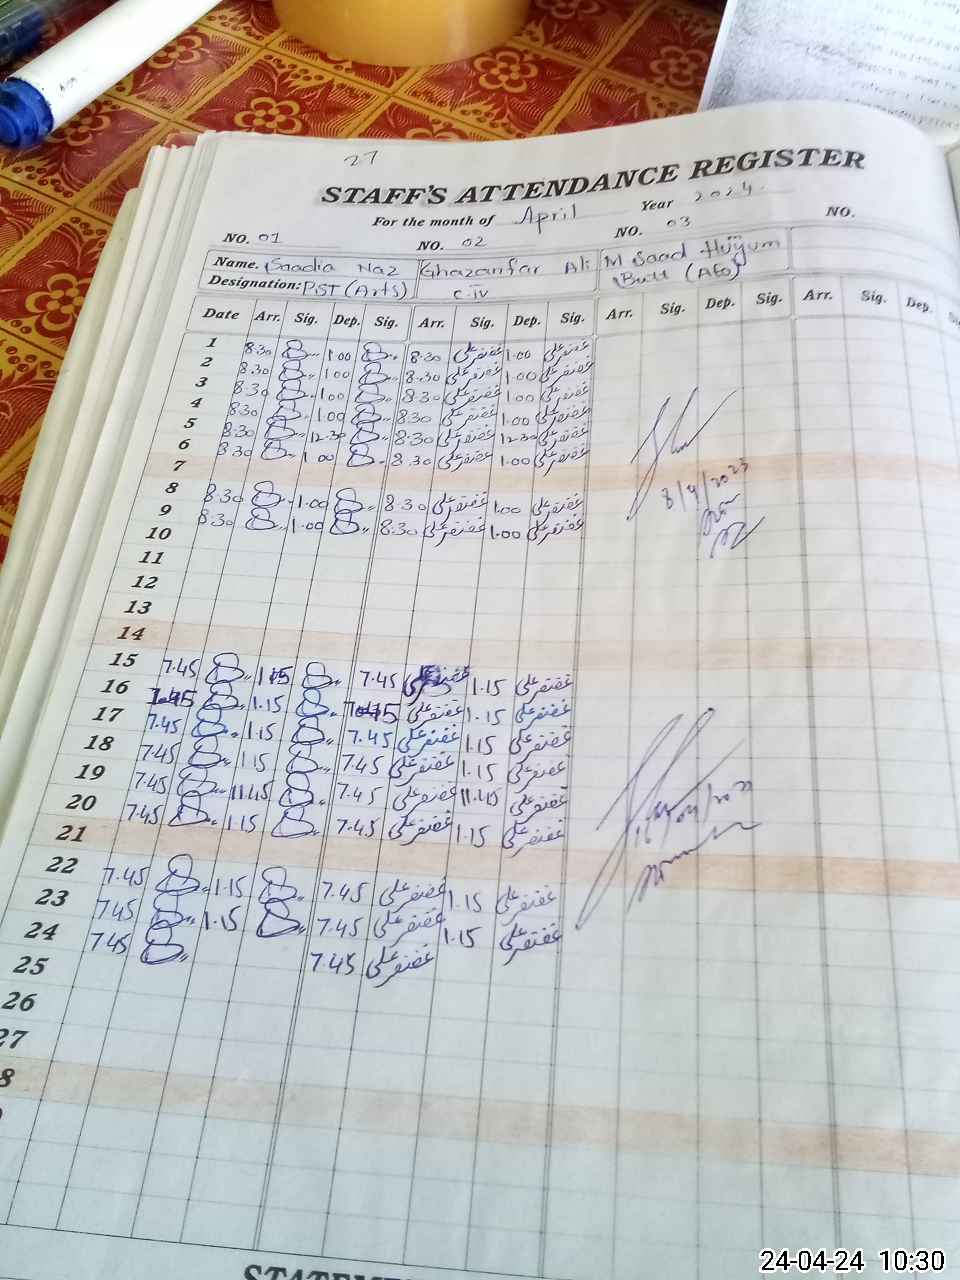 27
STAFF'S ATTENDANCE REGISTER
For the month of April Year 2024
NO. 01 NO. 02 NO. 03 NO.
Name. Saadia Naz Ghazanfar Ali M Saad Butt (AEO)
Designation: PST (Arts) C-IV
Date Arr. Sig. Dep. Sig. Arr. Sig. Dep. Sig. Arr. Sig. Dep. Sig. Arr. Sig. Dep.
1 8.30 1.00 8.30 غضنفر علی 1.00 غضنفر علی
2 8.30 1.00 8.30 غضنفر علی 1.00 غضنفر علی
3 8.30 1.00 8.30 غضنفر علی 1.00 غضنفر علی
4 8.30 1.00 8.30 غضنفر علی 1.00 غضنفر علی
5 8.30 12.30 8.30 غضنفر علی 12.30 غضنفر علی
6 8.30 1.00 8.30 غضنفر علی 1.00 غضنفر علی
7
8 8.30 1.00 8.30 غضنفر علی 1.00 غضنفر علی 8/4/2023
9 8.30 1.00 8.30 غضنفر علی 1.00 غضنفر علی
10
11
12
13
14
15 7.45 1.15 7.45 غضنفر علی 1.15 غضنفر علی
16 7.45 1.15 7.45 غضنفر علی 1.15 غضنفر علی
17 7.45 1.15 7.45 غضنفر علی 1.15 غضنفر علی
18 7.45 1.15 7.45 غضنفر علی 1.15 غضنفر علی
19 7.45 11.45 7.45 غضنفر علی 11.45 غضنفر علی
20 7.45 1.15 7.45 غضنفر علی 1.15 غضنفر علی
21
22 7.45 1.15 7.45 غضنفر علی 1.15 غضنفر علی
23 7.45 1.15 7.45 غضنفر علی 1.15 غضنفر علی
24 7.45 7.45 غضنفر علی
25
26
27
8
24-04-24 10:30